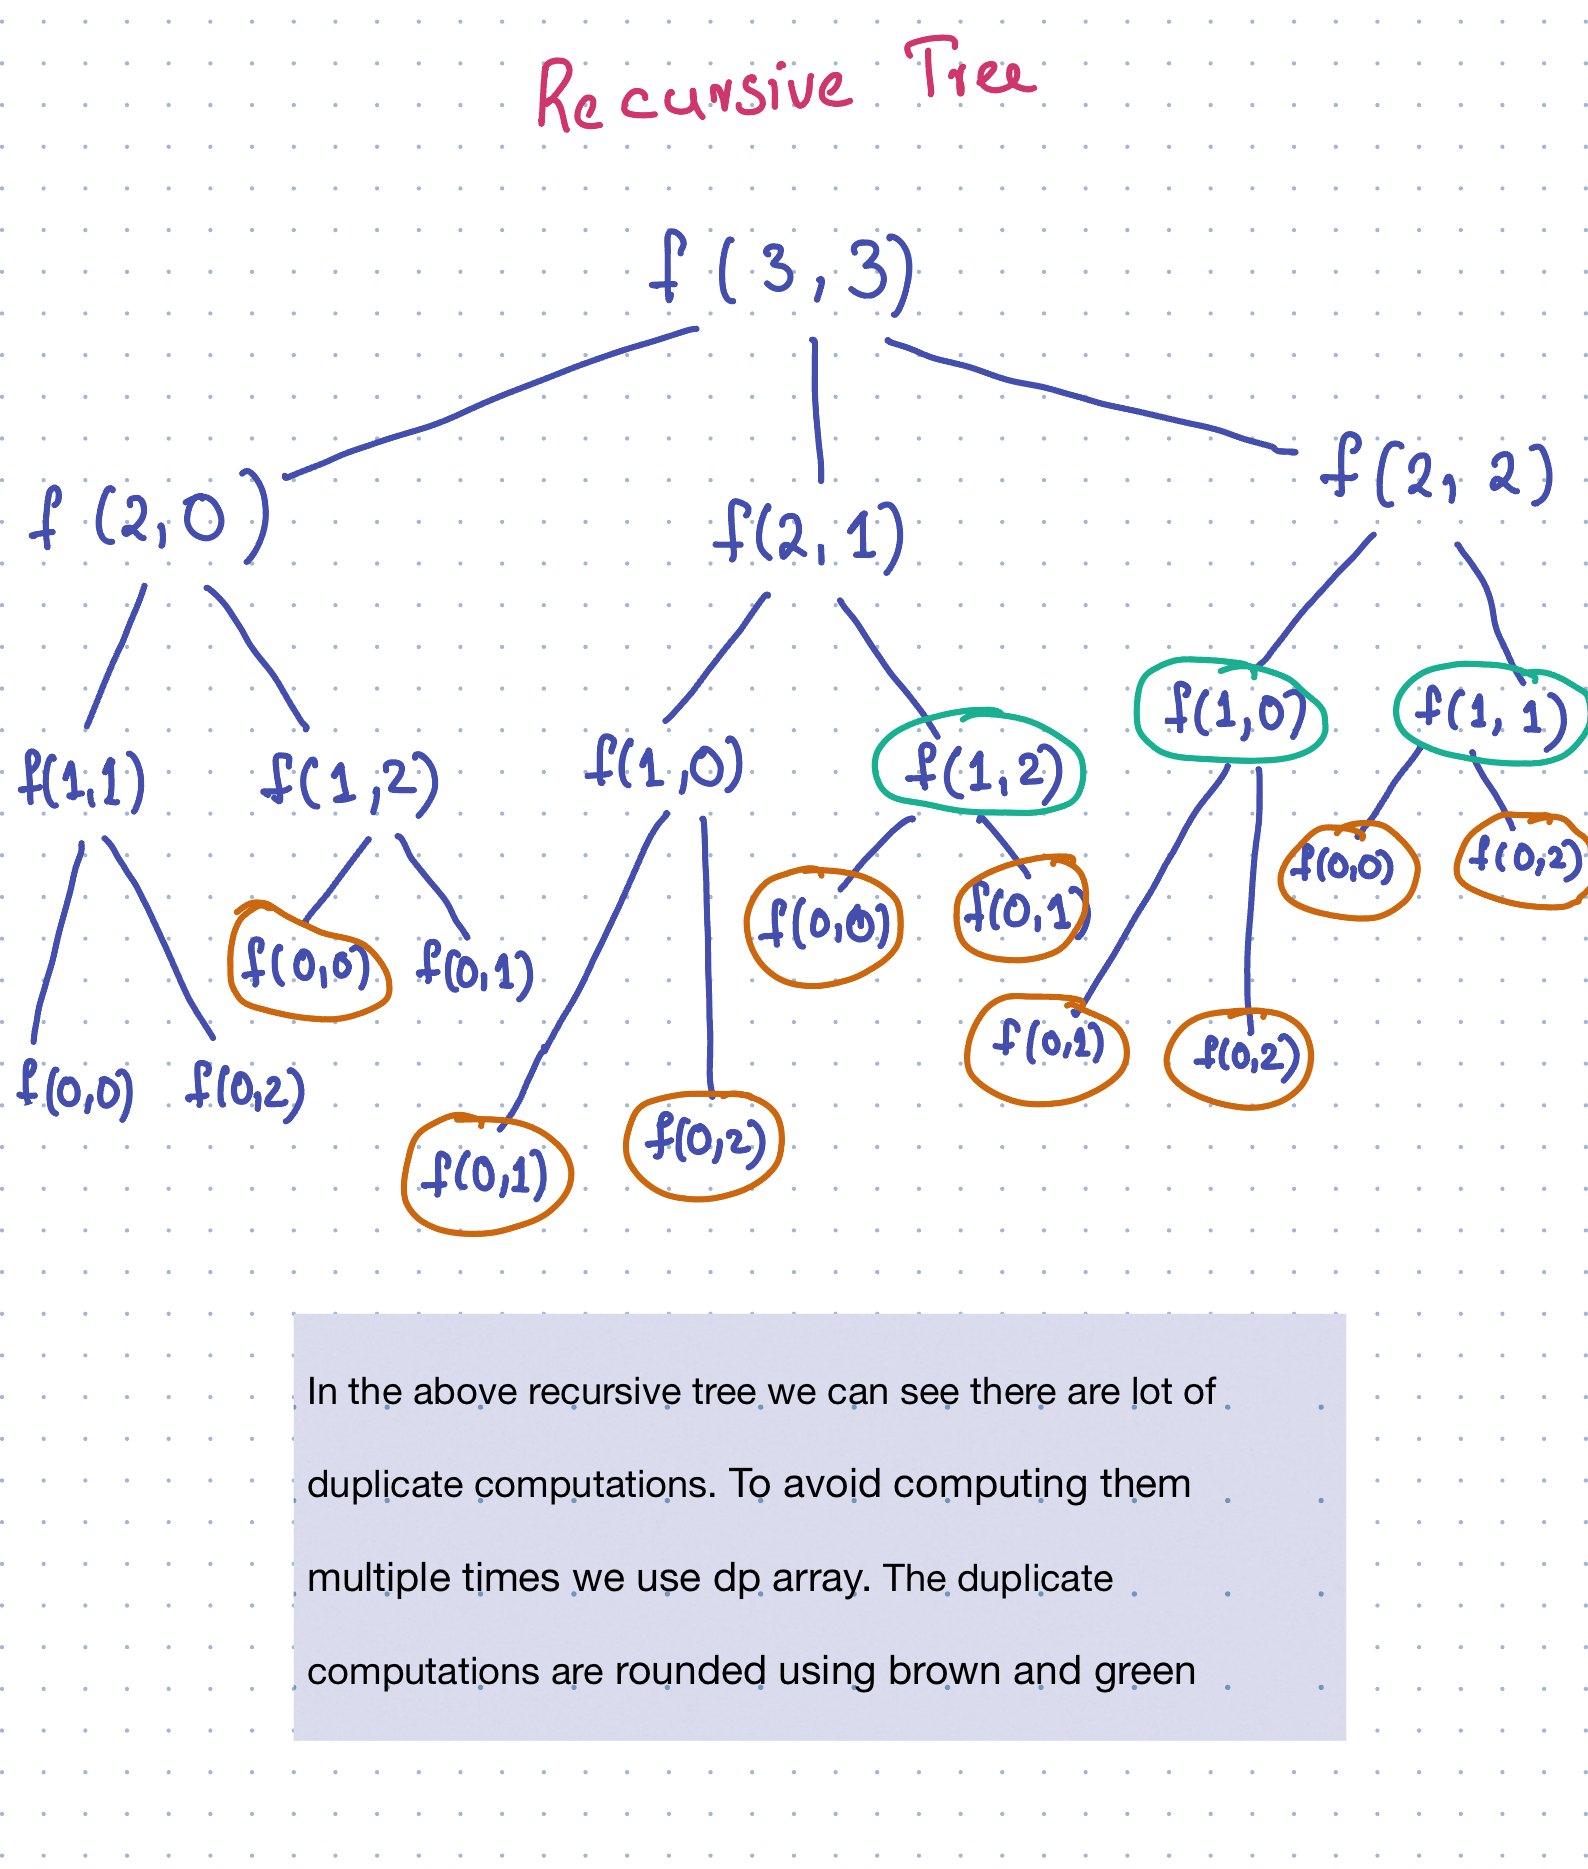 Recursive Tree
f(3,3)
f(2,0) f(2,1) f(2,2)
f(1,1) f(1,2) f(1,0) f(1,2) f(1,0) f(1,1)
f(0,0) f(0,1) f(0,0) f(0,1) f(0,0) f(0,2)
f(0,0) f(0,2) f(0,1) f(0,2) f(0,1) f(0,2)
In the above recursive tree we can see there are lot of
duplicate computations. To avoid computing them
multiple times we use dp array. The duplicate
computations are rounded using brown and green